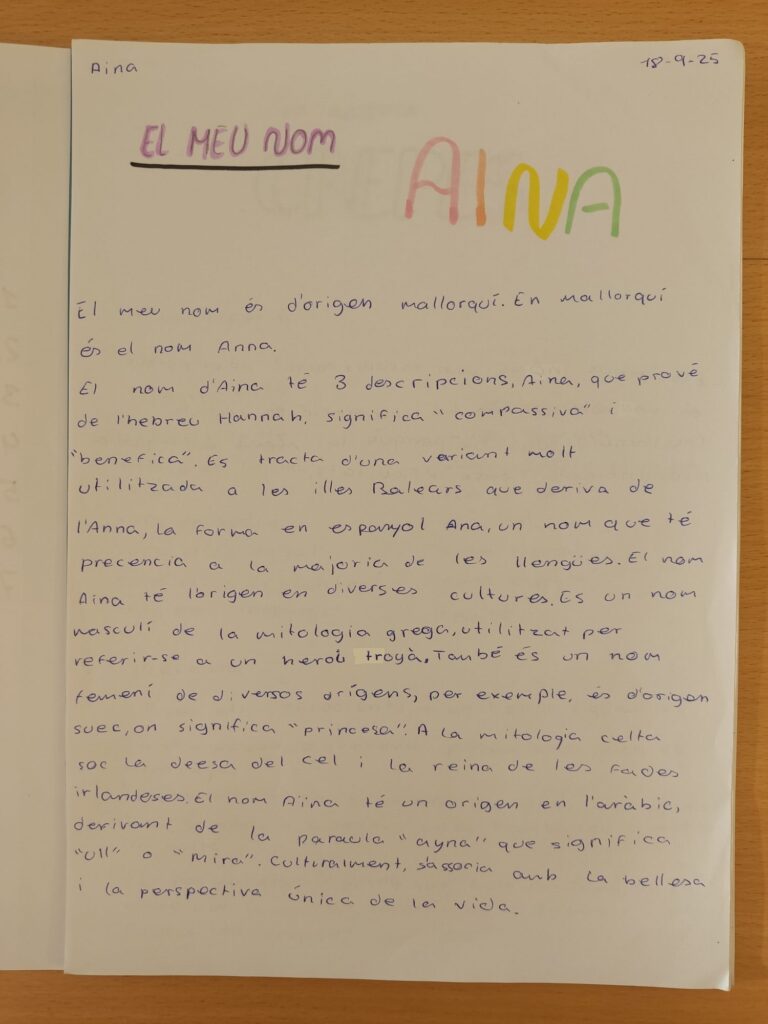 Aina
18-9-25
EL MEU NOM
AINA
El meu nom és d'origen mallorquí. En mallorquí
és el nom Anna.
El nom d'Aina té 3 descripcions, Aina, que prové
de l'hebreu Hannah, significa "compassiva" i
"benefica". Es tracta d'una variant molt
utilitzada a les illes Balears que deriva de
l'Anna, la forma en espanyol Ana, un nom que té
precencia a la majoria de les llengües. El nom
Aina té lorigen en diverses cultures. Es un nom
masculí de la mitologia grega, utilitzat per
referir-se a un heroi troyà. També és un nom
femení de diversos orígens, per exemple, és d'origen
suec, on significa "princesa". A la mitologia celta
soc la deesa del cel i la reina de les fades
irlandeses. El nom Aina té un origen en l'aràbic,
derivant de la paraula "ayna" que significa
"Ull" o "Mira". Culturalment, s'associa amb la bellesa
i la perspectiva única de la vida.